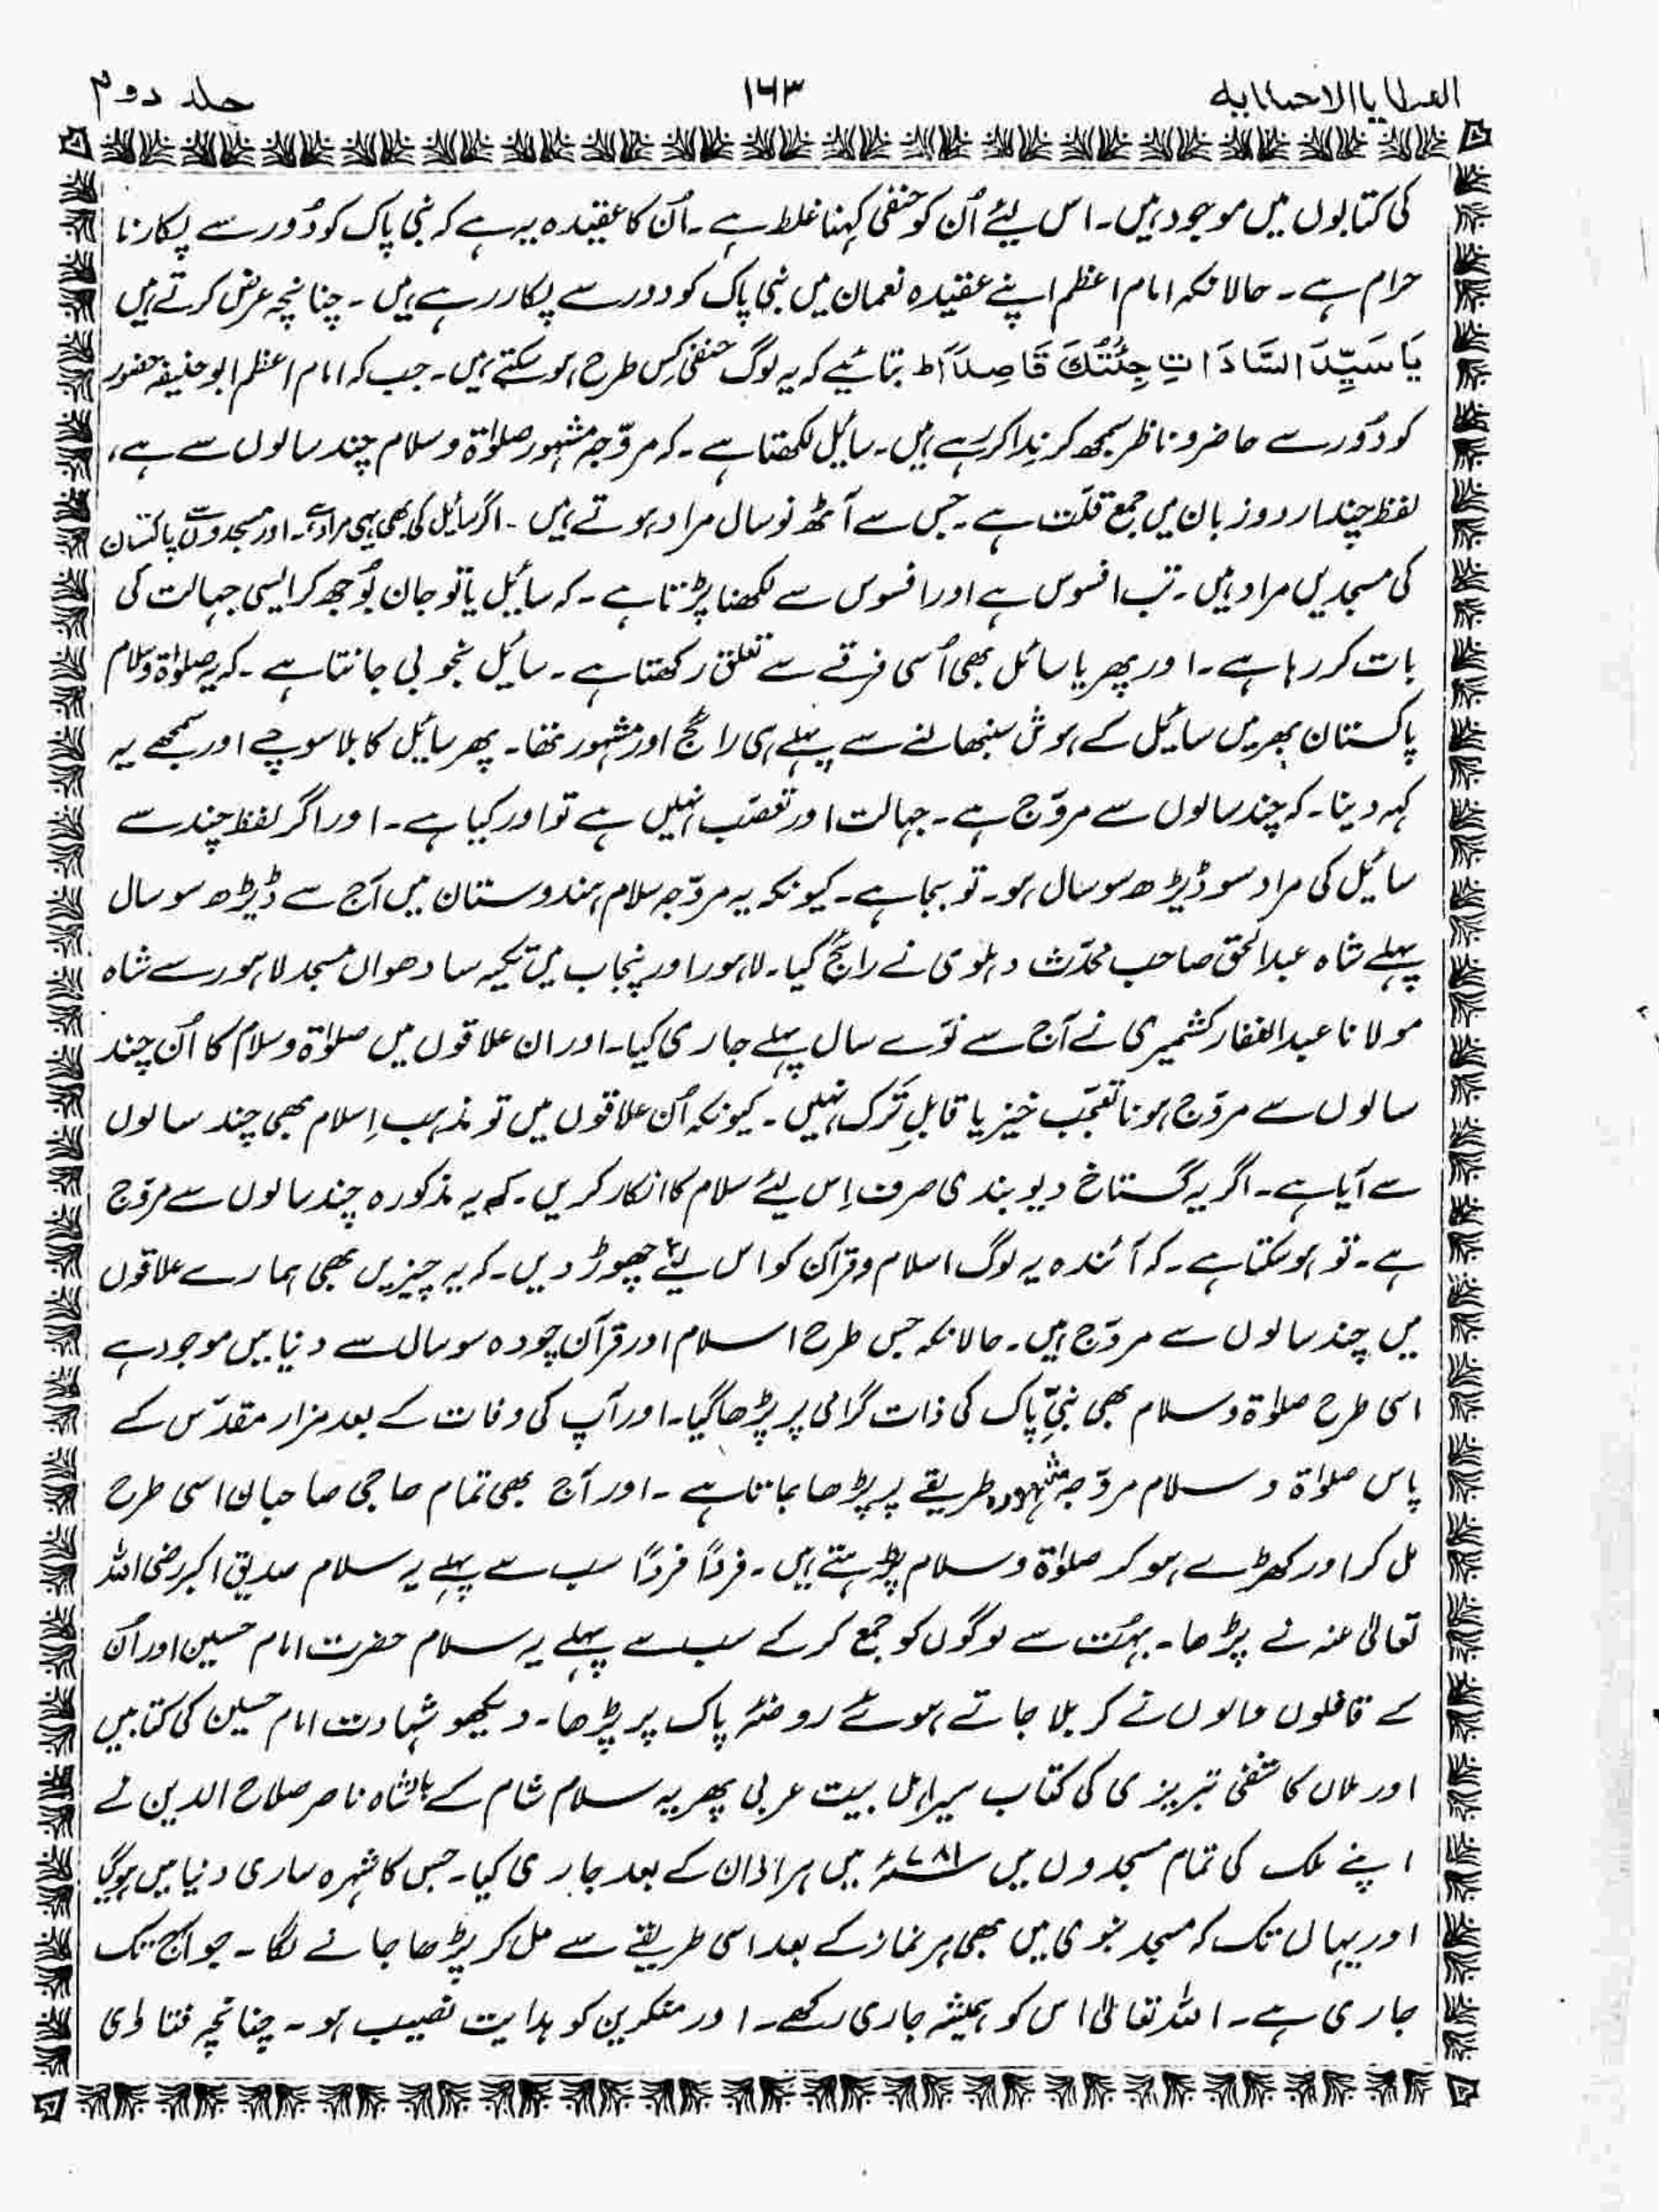 العطایا الاحمدیہ ۱۶۳ جلد دوم
کی کتابوں میں موجود ہیں۔ اس لیئے اُن کو حنفی کہنا غلط ہے۔ اُن کا عقیدہ یہ ہے کہ نبی پاک کو دُور سے پکارنا
حرام ہے۔ حالانکہ امام اعظم اپنے عقیدہ نعمان میں نبی پاک کو دور سے پکار رہے ہیں۔ چنانچہ عرض کرتے ہیں
یَا سَیِّدَ السَّادَاتِ جِئْتُکَ قَاصِدًا ط بتائیے کہ یہ لوگ حنفی کِس طرح ہو سکتے ہیں۔ جب کہ امام اعظم ابو حنیفہ حضور
کو دُور سے حاضر و ناظر سمجھ کر نِدا کر رہے ہیں۔ سائِل لکھتا ہے۔ کہ مروّجہ مشہور صلوٰۃ و سلام چند سالوں سے ہے،
لفظ چند اردو زبان میں جمع قلّت ہے۔ جس سے آٹھ نو سال مراد ہوتے ہیں۔ اگر سائِل کی بھی یہی مراد ہے۔ اور مسجدوں سے پاکستان
کی مسجدیں مراد ہیں۔ تب افسوس ہے اور افسوس سے لکھنا پڑتا ہے۔ کہ سائِل یا تو جان بُوجھ کر ایسی جہالت کی
بات کر رہا ہے۔ اور پھر یا سائل بھی اُسی فرقے سے تعلق رکھتا ہے۔ سائِل بخوبی جانتا ہے۔ کہ یہ صلوٰۃ و سلام
پاکستان بھر میں سائِل کے ہوش سنبھالنے سے پہلے ہی رائج اور مشہور تھا۔ پھر سائِل کا بلا سوچے اور سمجھے یہ
کہہ دینا۔ کہ چند سالوں سے مروّج ہے۔ جہالت اور تعصّب نہیں ہے تو اور کیا ہے۔ اور اگر لفظ چند سے
سائِل کی مراد سو ڈیڑھ سو سال ہو۔ تو بجا ہے۔ کیونکہ یہ مروّجہ سلام ہندوستان میں آج سے ڈیڑھ سو سال
پہلے شاہ عبدالحق صاحب محدّث دہلوی نے رائج کیا۔ لاہور اور پنجاب میں تکیہ سادھواں مسجد لاہور سے شاہ
مولانا عبدالغفار کشمیری نے آج سے نوّے سال پہلے جاری کیا۔ اور ان علاقوں میں صلوٰۃ و سلام کا اُن چند
سالوں سے مروّج ہونا تعجّب خیز یا قابلِ تَرک نہیں۔ کیونکہ اُن علاقوں میں تو مذہب اِسلام بھی چند سالوں
سے آیا ہے۔ اگر یہ گستاخ دیوبندی صرف اِس لیئے سلام کا انکار کریں۔ کہ یہ مذکورہ چند سالوں سے مروّج
ہے۔ تو ہو سکتا ہے۔ کہ آئندہ یہ لوگ اسلام و قرآن کو اس لیئے چھوڑ دیں۔ کہ یہ چیزیں بھی ہمارے علاقوں
میں چند سالوں سے مروّج ہیں۔ حالانکہ جس طرح اسلام اور قرآن چودہ سو سال سے دنیا میں موجود ہے
اسی طرح صلوٰۃ و سلام بھی نبیِّ پاک کی ذات گرامی پر پڑھا گیا۔ اور آپ کی وفات کے بعد مزار مقدّس کے
پاس صلوٰۃ و سلام مروّجہ مشہورہ طریقے پر پڑھا جاتا ہے۔ اور آج بھی تمام حاجی صاحبان اسی طرح
مل کر اور کھڑے ہو کر صلوٰۃ و سلام پڑہتے ہیں۔ فردًا فردًا سب سے پہلے یہ سلام صدیق اکبر رضی اللہ
تعالیٰ عنہ نے پڑھا۔ بہُت سے لوگوں کو جمع کر کے سب سے پہلے یہ سلام حضرت امام حسین اور اُن
کے قافلوں والوں نے کربلا جاتے ہوئے روضۂ پاک پر پڑھا۔ دیکھو شہادت امام حسین کی کتابیں
اور ملاں کاشفی تبریزی کی کتاب سیر اہل بیت عربی پھر یہ سلام شام کے بادشاہ ناصر صلاح الدین نے
اپنے ملک کی تمام مسجدوں میں ۷۸۱ء میں ہر اذان کے بعد جاری کیا۔ جس کا شہرہ ساری دنیا میں ہوگیا
اور یہاں تک کہ مسجد نبوی میں بھی ہر نماز کے بعد اسی طریقے سے مل کر پڑھا جانے لگا۔ جو آج تک
جاری ہے۔ اللہ تعالیٰ اس کو ہمیشہ جاری رکھے۔ اور منکرین کو ہدایت نصیب ہو۔ چنانچہ فتاوٰی